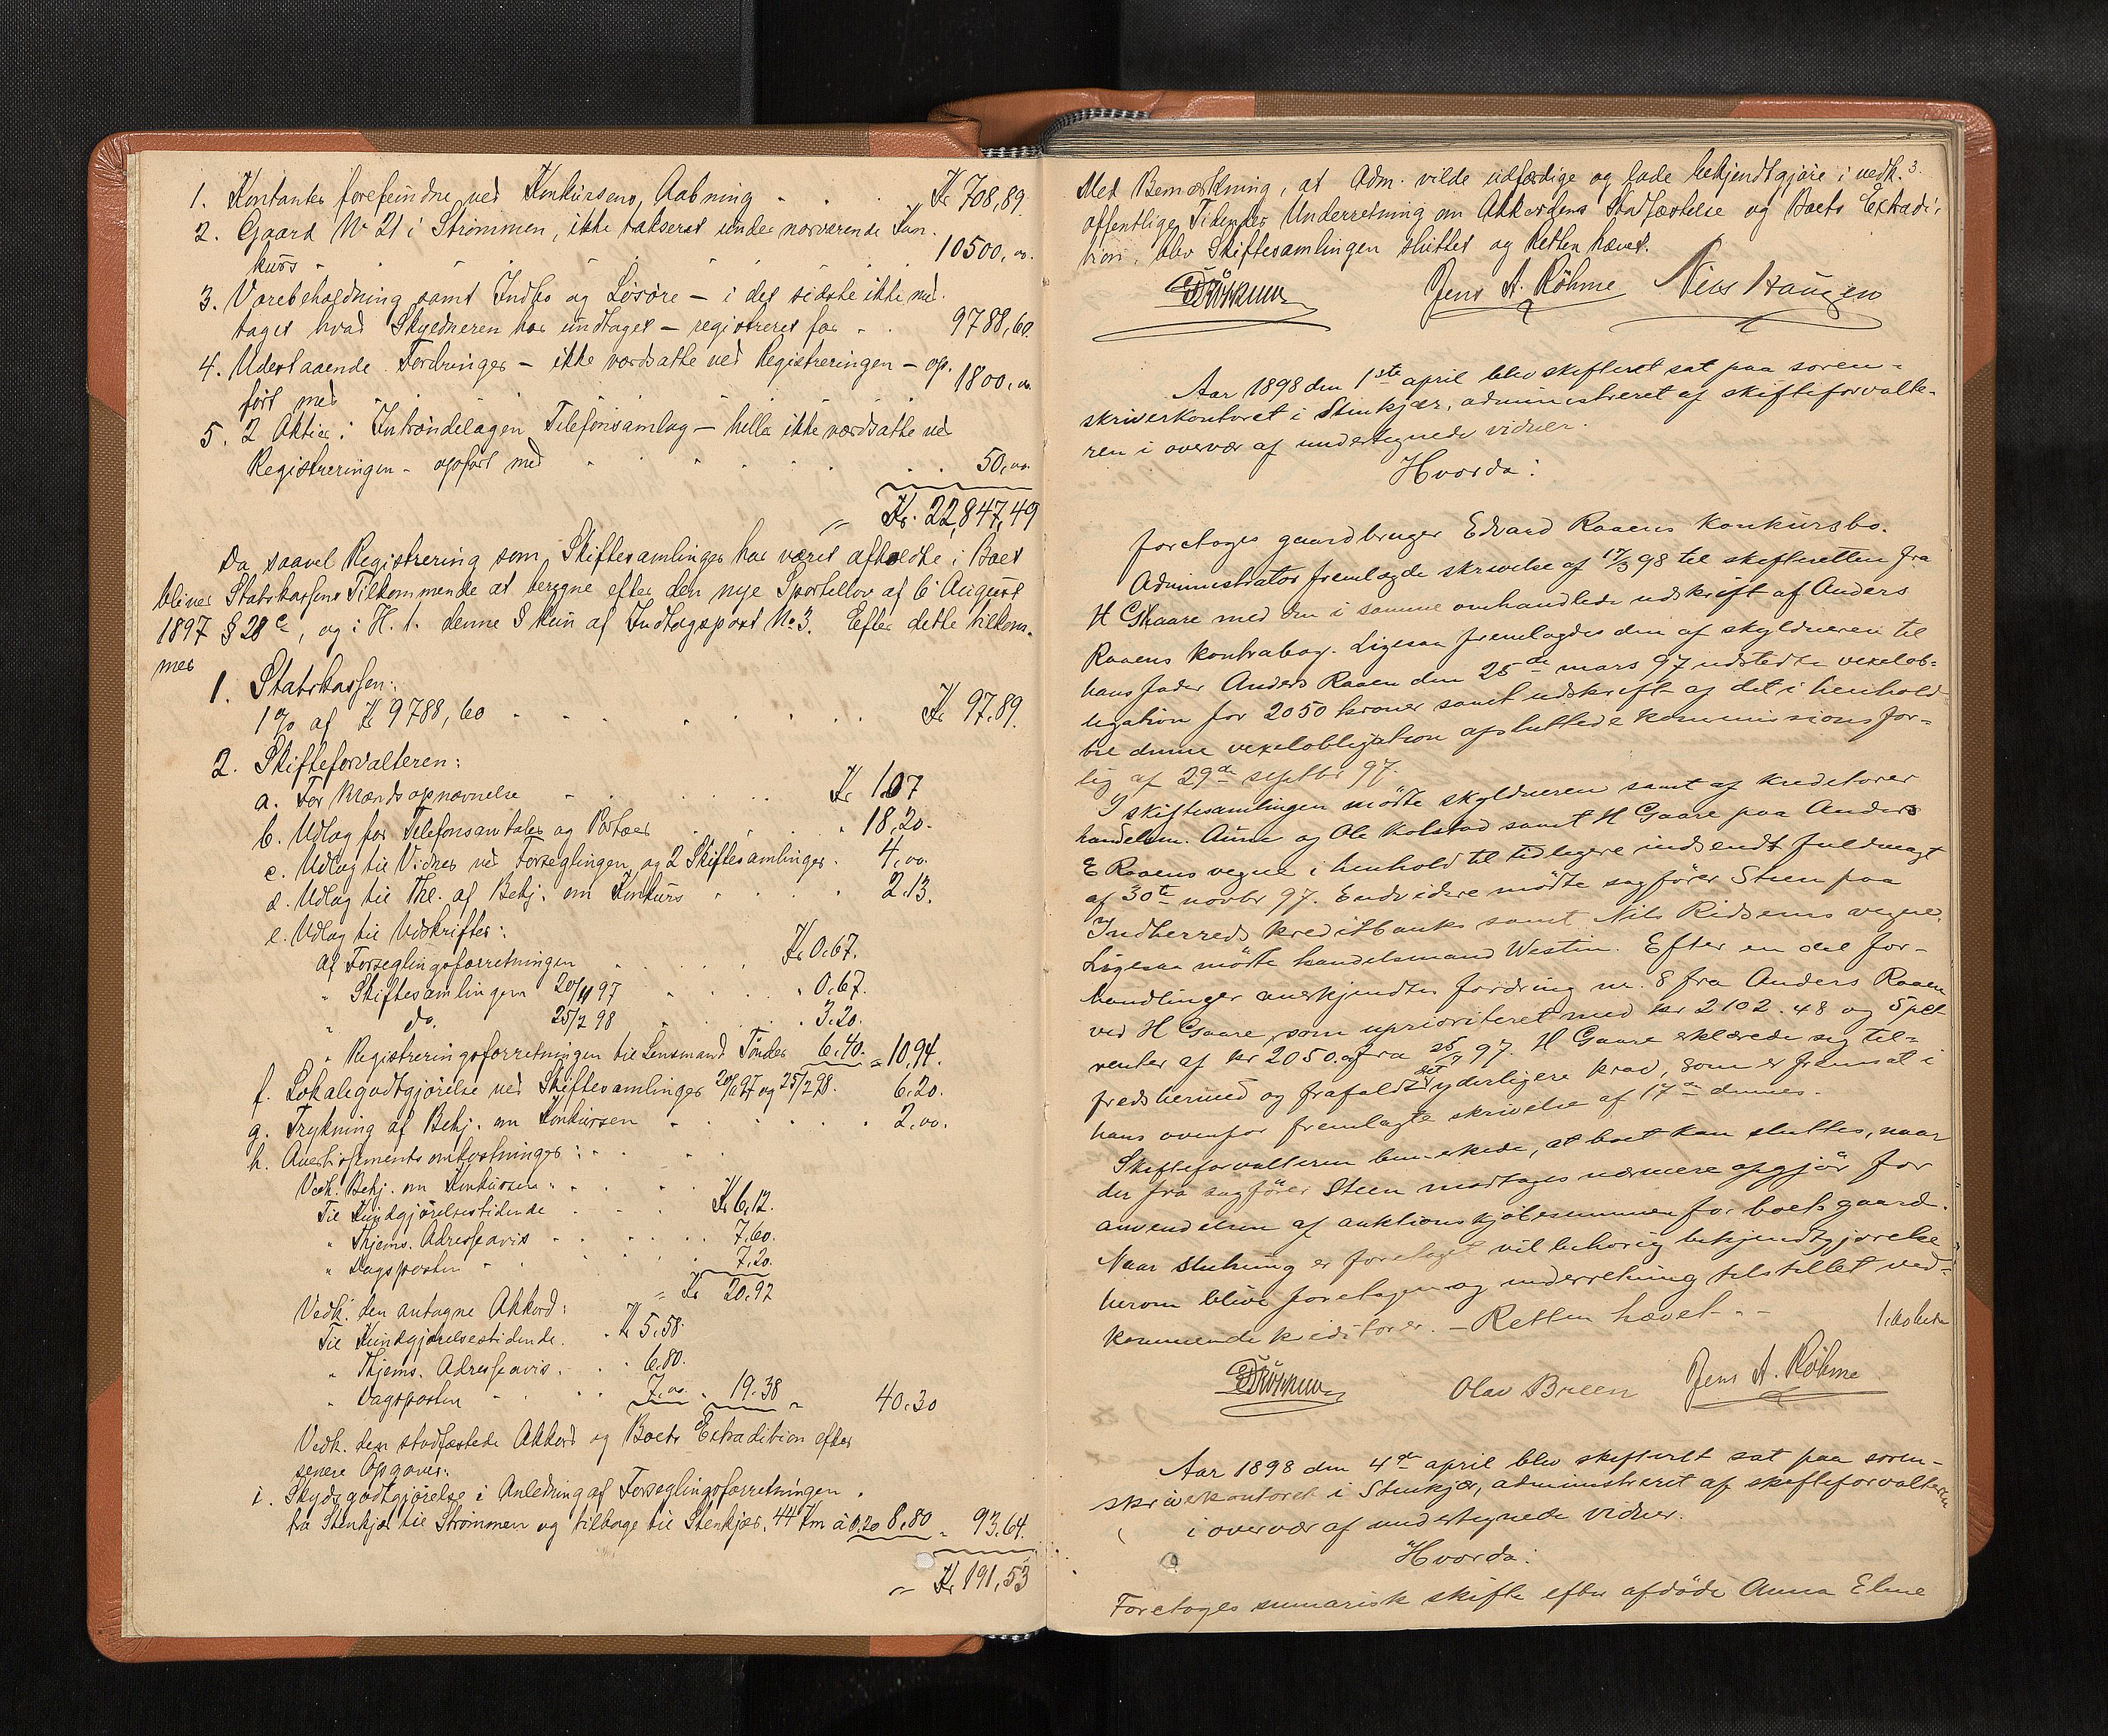 1. Kontanter forefundne ved Konkursens Aabning . . . Kr 708,89.
2. Gaard No 21 i Strømmen, ikke takseret under nærværende Kon-
kurs . . . . . . . 10500,00.
3. Varebeholdning samt Indbo og Løsøre – i det sidste ikke med-
taget hvad Skyldneren har undtaget – registreret for . . 9788,60.
4. Udestaaende Fordringer – ikke værdsatte ved Registreringen – op-
ført med . . . . . . 1800,00
5. 2 Aktier i Indtrøndelagen Telefonsamlag – heller ikke værdsatte ved
Registreringen – opført med . . . . . . 50,00.
" Kr. 22,847,49
Da saavel Registrering som Skiftesamlinger har været afholdte i Boet
bliver Statskassens Tilkommende at beregne efter den nye Sportellov af 6 August
1897 § 28 c, og i H. t. denne § kun af Indtægspost No 3. Efter dette tilkom-
mer
1. Statskassen:
1% af Kr 9788,60 . . . . . . . Kr 97.89.
2. Skifteforvalteren:
a. For Mændsopnævnelse . . . . . Kr 1.07
b. Udlæg for Telefonsamtaler og Portoer . . . . " 18,20.
c. Udlæg til Vidner ved Forseglingen og 2 Skiftesamlinger . 4,00.
d. Udlæg til Thl. af Bekj. om Konkurs . . . 2.13.
e. Udlæg til Udskrifter:
Af Forseglingsforretningen . . . Kr 0.67.
" Skiftesamlingen 20/11 97 . . . " 0.67.
" do. 25/2 98 . . . 3.20.
" Registreringsforretningen til Lensmand Tønder 6.40. = 10,94.
f. Lokalegodtgjørelse ved Skiftesamlinger 20/11 97 og 25/2 98. 6.20.
g. Trykning af Bekj. om Konkursen . . . . . . 2,00.
h. Avertissementsomkostninger: . . . .
Vedk. Bekj. om Konkursen: . . . .
Til Kundgjørelsestidende . . . Kr 6.12.
" Thjems. Adresseavis . . . . . . 7.60.
" Dagsposten . . . . 7.20.
" Kr 20.92
Vedk. den antagne Akkord:
Til Kundgjørelsestidende. . Kr 5.58.
" Thjems. Adresseavis. . . . 6.80.
" Dagsposten . . . . 7.00. . 19.38 " 40.30
Vedk. den stadfæstede Akkord og Boets Extradition efter
senere Opgaver:
i. Skydsgodtgjørelse i Anledning af Forseglingsforretningen .
fra Stenkjær til Strømmen og tilbage til Stenkjær. 44 Km à 0.20 8.80 " 93.64.
" Kr 191,53
3.
Med Bemærkning, at Adm. vilde udfærdige og lade bekjendtgjøre i vedk.
offentlige Tidender Underretning om Akkordens Stadfæstelse og Boets Extradi-
tion, blev Skiftesamlingen sluttet og Retten hævet.
Jens A. Røhme Nils Haugen
Aar 1898 den 1ste april blev skifteret sat paa soren-
skriverkontoret i Stenkjær, administreret af skifteforvalte-
ren i overvær af undertegnede vidner.
Hvorda:
foretoges gaardbruger Edvard Raaens konkursbo.
Administrator fremlagde skrivelse af 17/3 98 til skifteretten fra
H Gaare med den i samme omhandlede udskrift af Anders
Raaens kontrabog. Ligesaa fremlagdes den af skyldneren til
hans fader Anders Raaen den 25de mars 97 udstedte vexelob-
ligation for 2050 kroner samt udskrift af det i henhold
til denne vexelobligation afsluttede kommissionsfor-
lig af 29de septbr 97.
I skiftesamlingen mødte skyldneren samt af kreditorer
handelsm. Aune og Ole Kolstad samt H Gaare paa Anders
E Raaens vegne i henhold til tidligere indsendt fuldmagt
af 30te novbr 97. Endvidere mødte sagfører Steen paa
Indherreds kreditbanks samt Nils Ridsems vegne.
Ligesaa mødte handelsmand Westin. Efter en del for-
handlinger anerkjendtes fordring nr. 8 fra Anders Raaen
ved H Gaare, som uprioriteret med kr 2102.48 og 5 pct
renter af kr 2050.00 fra 97. H Gaare erklærede sig til-
freds hermed og frafaldt det yderligere krav, som er fremsat i
hans ovenfor fremlagte skrivelse af 17de dennes.
Skifteforvalteren bemerkede, at boet kan sluttes, naar
der fra sagfører Steen modtages nærmere opgjør for
anvendelsen af auktionskjøbesummen for boets gaard.
Naar slutning er foretaget vil behørig bekjendtgjørelse
herom blive foretagen og underretning tilstillet ved-
kommende kreditorer. – Retten hævet – –
Olav Breen Jens A. Røhme
Aar 1898 den 4de april blev skifteret sat paa soren-
skriverkontoret i Stenkjær, administreret af skifteforvalteren
i overvær af undertegnede vidner.
Hvorda:
Foretoges summarisk skifte efter afdøde Anna Eline